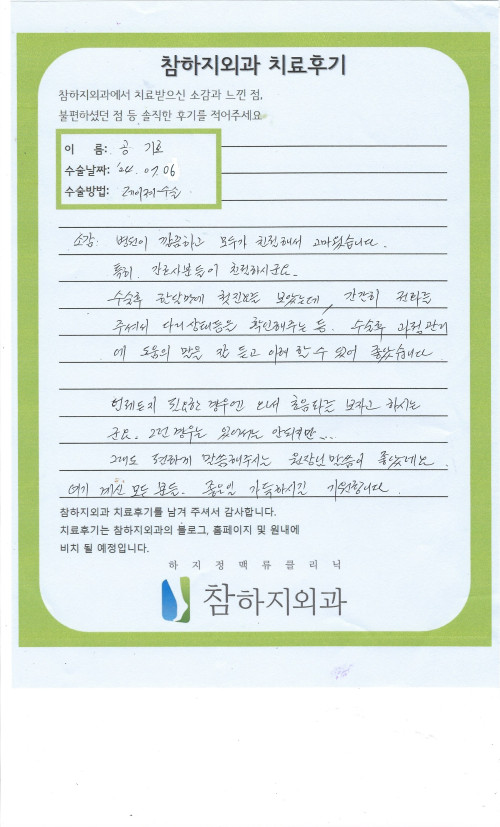 참하지외과 치료후기
참하지외과에서 치료받으신 소감과 느낀 점,
불편하셨던 점 등 솔직한 후기를 적어주세요
이 름: 공 기로
수술날짜: '24. 07. 06
수술방법: 레이저수술
소감: 병원이 깔끔하고 모두가 친절해서 고마웠습니다.
특히, 간호사분들이 친절하시군요.
수술후 한달만에 첫진료를 보았는데, 간간히 전화를
주셔서 다리상태등은 확인해주는 등. 수술후 과정관리
에 도움의 말을 잘 듣고 이해 할 수 있어 좋았습니다.
언제든지 필요한 경우엔 와서 초음파를 보자고 하시는
군요. 그런경우는 있어서는 안되지만...
그래도 편하게 말씀해주시는 원장님 말씀이 좋았네요.
여기 계신 모든 분들. 좋은일 가득하시길 기원합니다.
참하지외과 치료후기를 남겨 주셔서 감사합니다.
치료후기는 참하지외과의 블로그, 홈페이지 및 원내에
비치 될 예정입니다.
하지정맥류클리닉
참하지외과